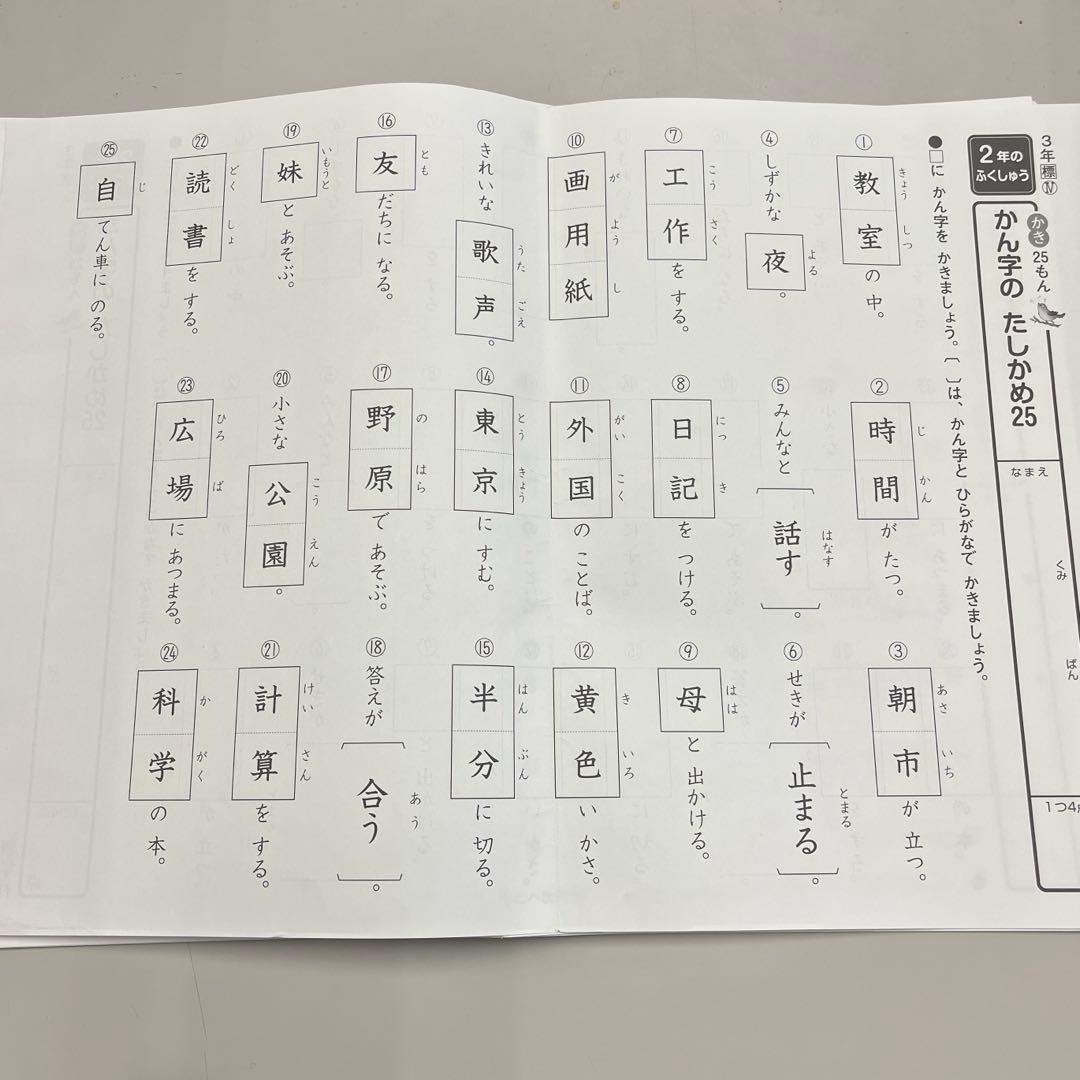 3年 標 Ⅳ
2年の ふくしゅう
かき 25もん
かん字の たしかめ25
なまえ
くみ
ばん
1つ4
●□に かん字を かきましょう。〔 〕は、かん字と ひらがなで かきましょう。
① 教室の 中。
きょう しつ
② 時間が たつ。
じ かん
③ 朝市が 立つ。
あさ いち
④ しずかな 夜。
よる
⑤ みんなと〔話す〕。
はなす
⑥ せきが〔止まる〕。
とまる
⑦ 工作を する。
こう さく
⑧ 日記を つける。
にっ き
⑨ 母と 出かける。
はは
⑩ 画用紙
が よう し
⑪ 外国の ことば。
がい こく
⑫ 黄色い かさ。
き いろ
⑬ きれいな 歌声。
うた ごえ
⑭ 東京に すむ。
とう きょう
⑮ 半分に 切る。
はん ぶん
⑯ 友だちに なる。
とも
⑰ 野原で あそぶ。
の はら
⑱ 答えが〔合う〕。
あう
⑲ 妹と あそぶ。
いもうと
⑳ 小さな 公園。
こう えん
㉑ 計算を する。
けい さん
㉒ 読書を する。
どく しょ
㉓ 広場に あつまる。
ひろ ば
㉔ 科学の 本。
か がく
㉕ 自てん車に のる。
じ